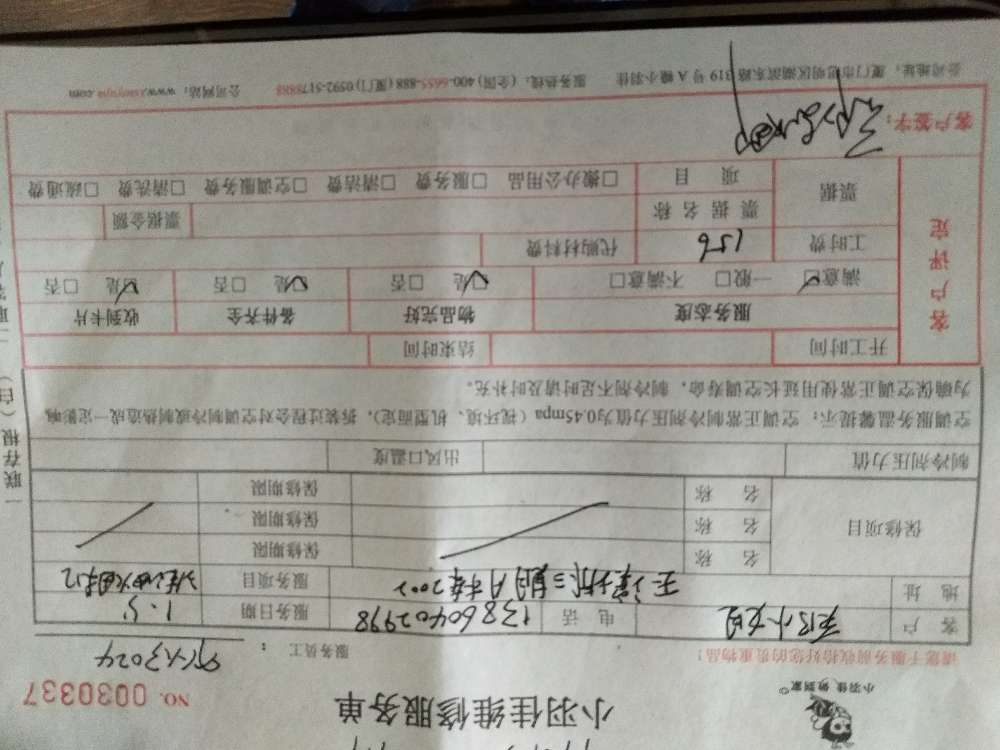 小羽佳 做到家
小羽佳维修服务单
NO. 0030337
请您于服务前收拾好您的贵重物品!
服务员工: 3024
客 户
电 话 13860402998
服务日期 1.5
地 址
服务项目
保修项目
名 称 保修期限
名 称 保修期限
名 称 保修期限
制冷剂压力值 出风口温度
空调服务温馨提示: 空调正常制冷剂压力值为0.45mpa(视环境、机型而定),拆装过程会对空调制冷或制热造成一定影响
为确保空调正常使用延长空调寿命,制冷剂不足时请及时补充。
客户评定
开工时间 结束时间
服务态度 物品完好 备件齐全 收到卡片
满意□ 一般□ 不满意□ □是 □否 □是 □否 □是 □否
工时费 156 代购材料费
票据 票据名称 票据金额
项 目 □搬办公用品 □服务费 □清洁费 □空调服务费 □清洗费 □疏通费
客户签字:
公司地址:厦门市思明区湖滨东路319号A幢小羽佳 服务热线:(全国)400-6655-888(厦门)0592-5178888 公司网站:www.xiaoyujia.com
一联存根(白)